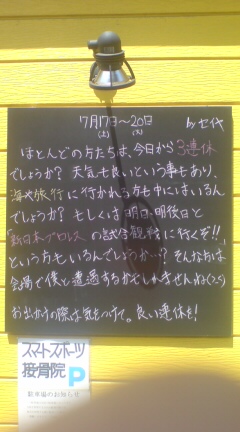 7月17日〜20日
(土) (火)
by セ代
ほとんどの方たちは、今日から3連休
でしょうか? 天気も良いという事もあり、
海や旅行に行かれる方も中にはいるん
でしょうか? もしくは明日・明後日と
「新日本プロレス」の試合観戦に行くぞ!!
という方もいるんでしょうか…? そんな方は
会場で僕と遭遇するかもしれませんね(つ∀)
お出かけの際は気をつけて。良い連休を!
スマートスポーツ
接骨院 P
駐車場のお知らせ